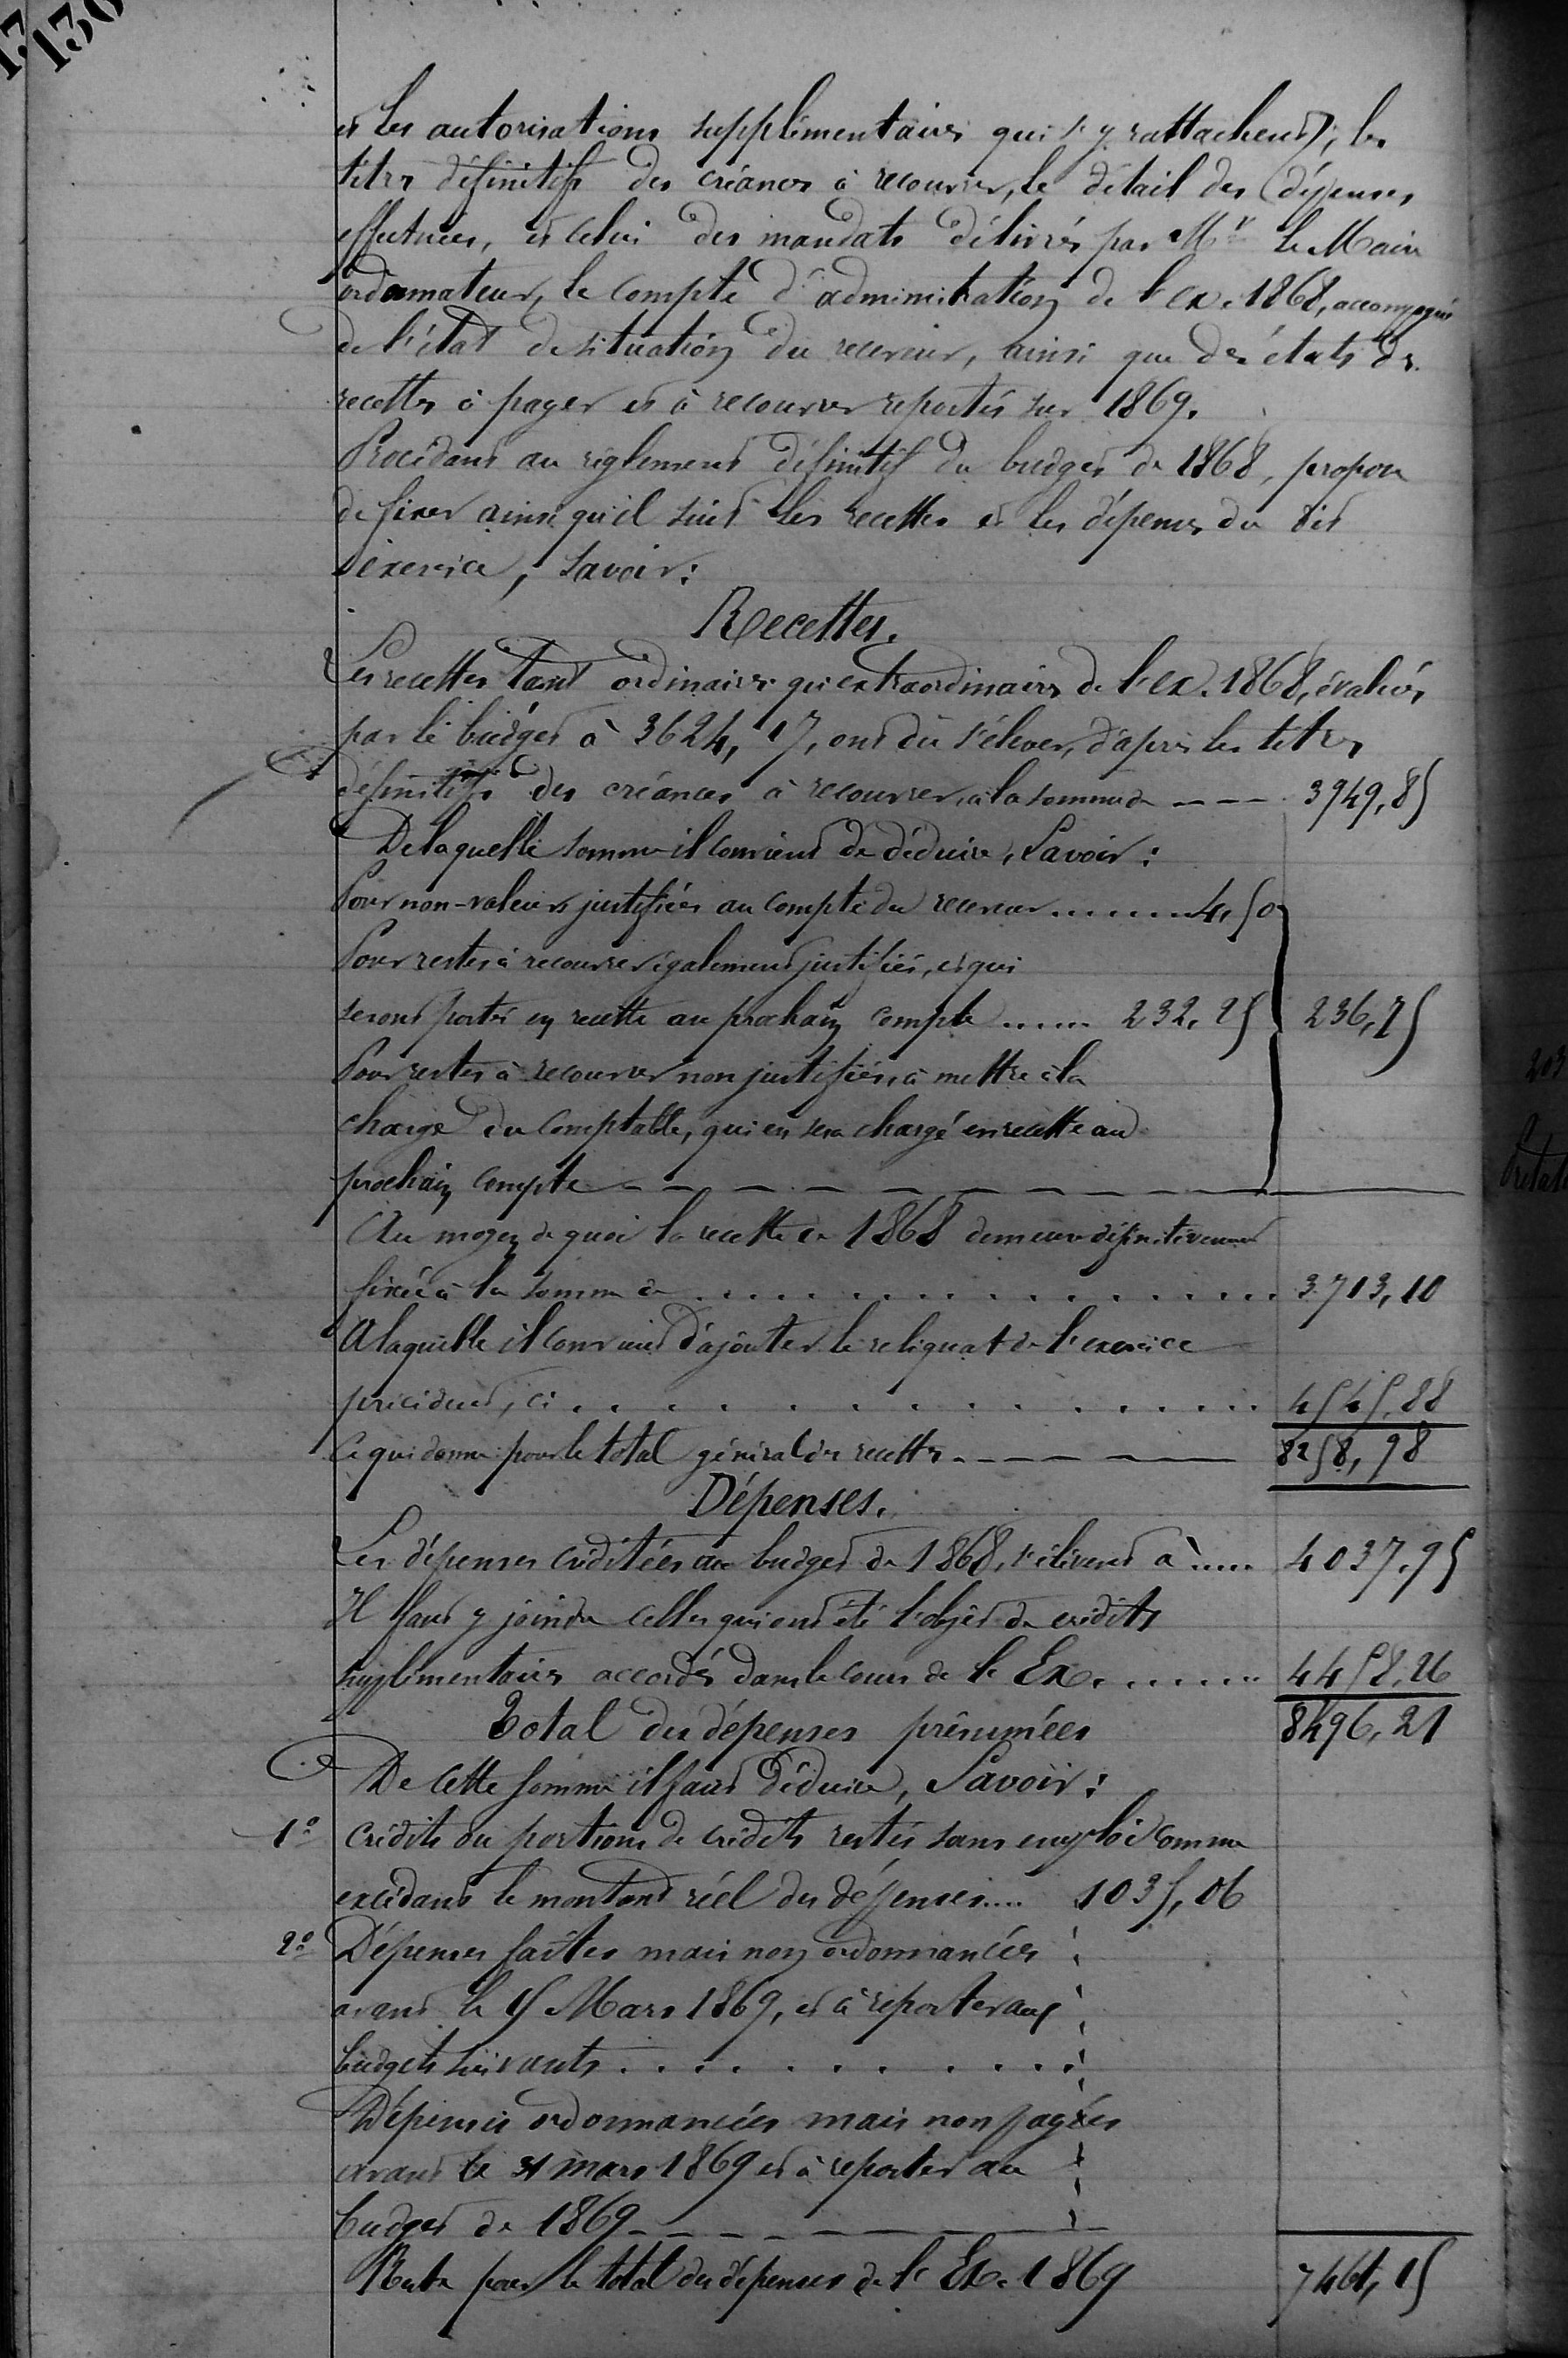 130
et les autorisations supplémentaires qui s'y rattachent, les
titres définitifs des créances à recouvrer, le détail des dépenses
effectuées, et celui des mandats délivrés par Mr le Maire
ordonnateur, le compte d'administration de l'ex. 1868, accompagné
de l'état de situation du receveur, ainsi que des états des
recettes à payer et à recouvrer reportés sur 1869.
Procédant au règlement définitif du budget de 1868, propose
de fixer ainsi qu'il suit les recettes et les dépenses du dit
exercice, savoir:
Recettes.
Les recettes tant ordinaires qu'extraordinaires de l'ex. 1868, évaluées
par le budget à 3624, 17, ont dû s'élever, d'après les titres
définitifs des créances à recouvrer, à la somme de --- 3949,85
De laquelle somme il convient de déduire, Savoir:
Pour non-valeurs justifiées au compte du receveur........ 4,50
Pour restes à recouvrer également justifiés, et qui
seront portés en recette au prochain compte ...... 232,25 236,75
Pour restes à recouvrer non justifiés, à mettre à la
charge du comptable, qui en sera chargé en recette au
prochain compte
Au moyen de quoi la recette de 1868 demeure définitivement
fixée à la somme de ........ 3713,10
A laquelle il convient d'ajouter le reliquat de l'exercice
précédent, ci ........ 4545,88
Ce qui donne pour le total général des recettes 8258,98
Dépenses.
Les dépenses créditées au budget de 1868, s'élèvent à ..... 4037,95
Il faut y joindre celles qui ont été l'objet de crédits
supplémentaires accordés dans le cours de l'Ex. ....... 4458,26
Total des dépenses présumées 8496,21
De cette somme il faut déduire, Savoir:
1º Crédits ou portions de crédits restés sans emploi comme
excédant le montant réel des dépenses.... 1035,06
2º Dépenses faites mais non ordonnancées
avant le 15 Mars 1869, et à reporter aux
budgets suivants ........
Dépenses ordonnancées mais non payées
avant le 31 mars 1869 et à reporter au
budget de 1869
Reste pour le total des dépenses de l'Ex. 1869 7461,15